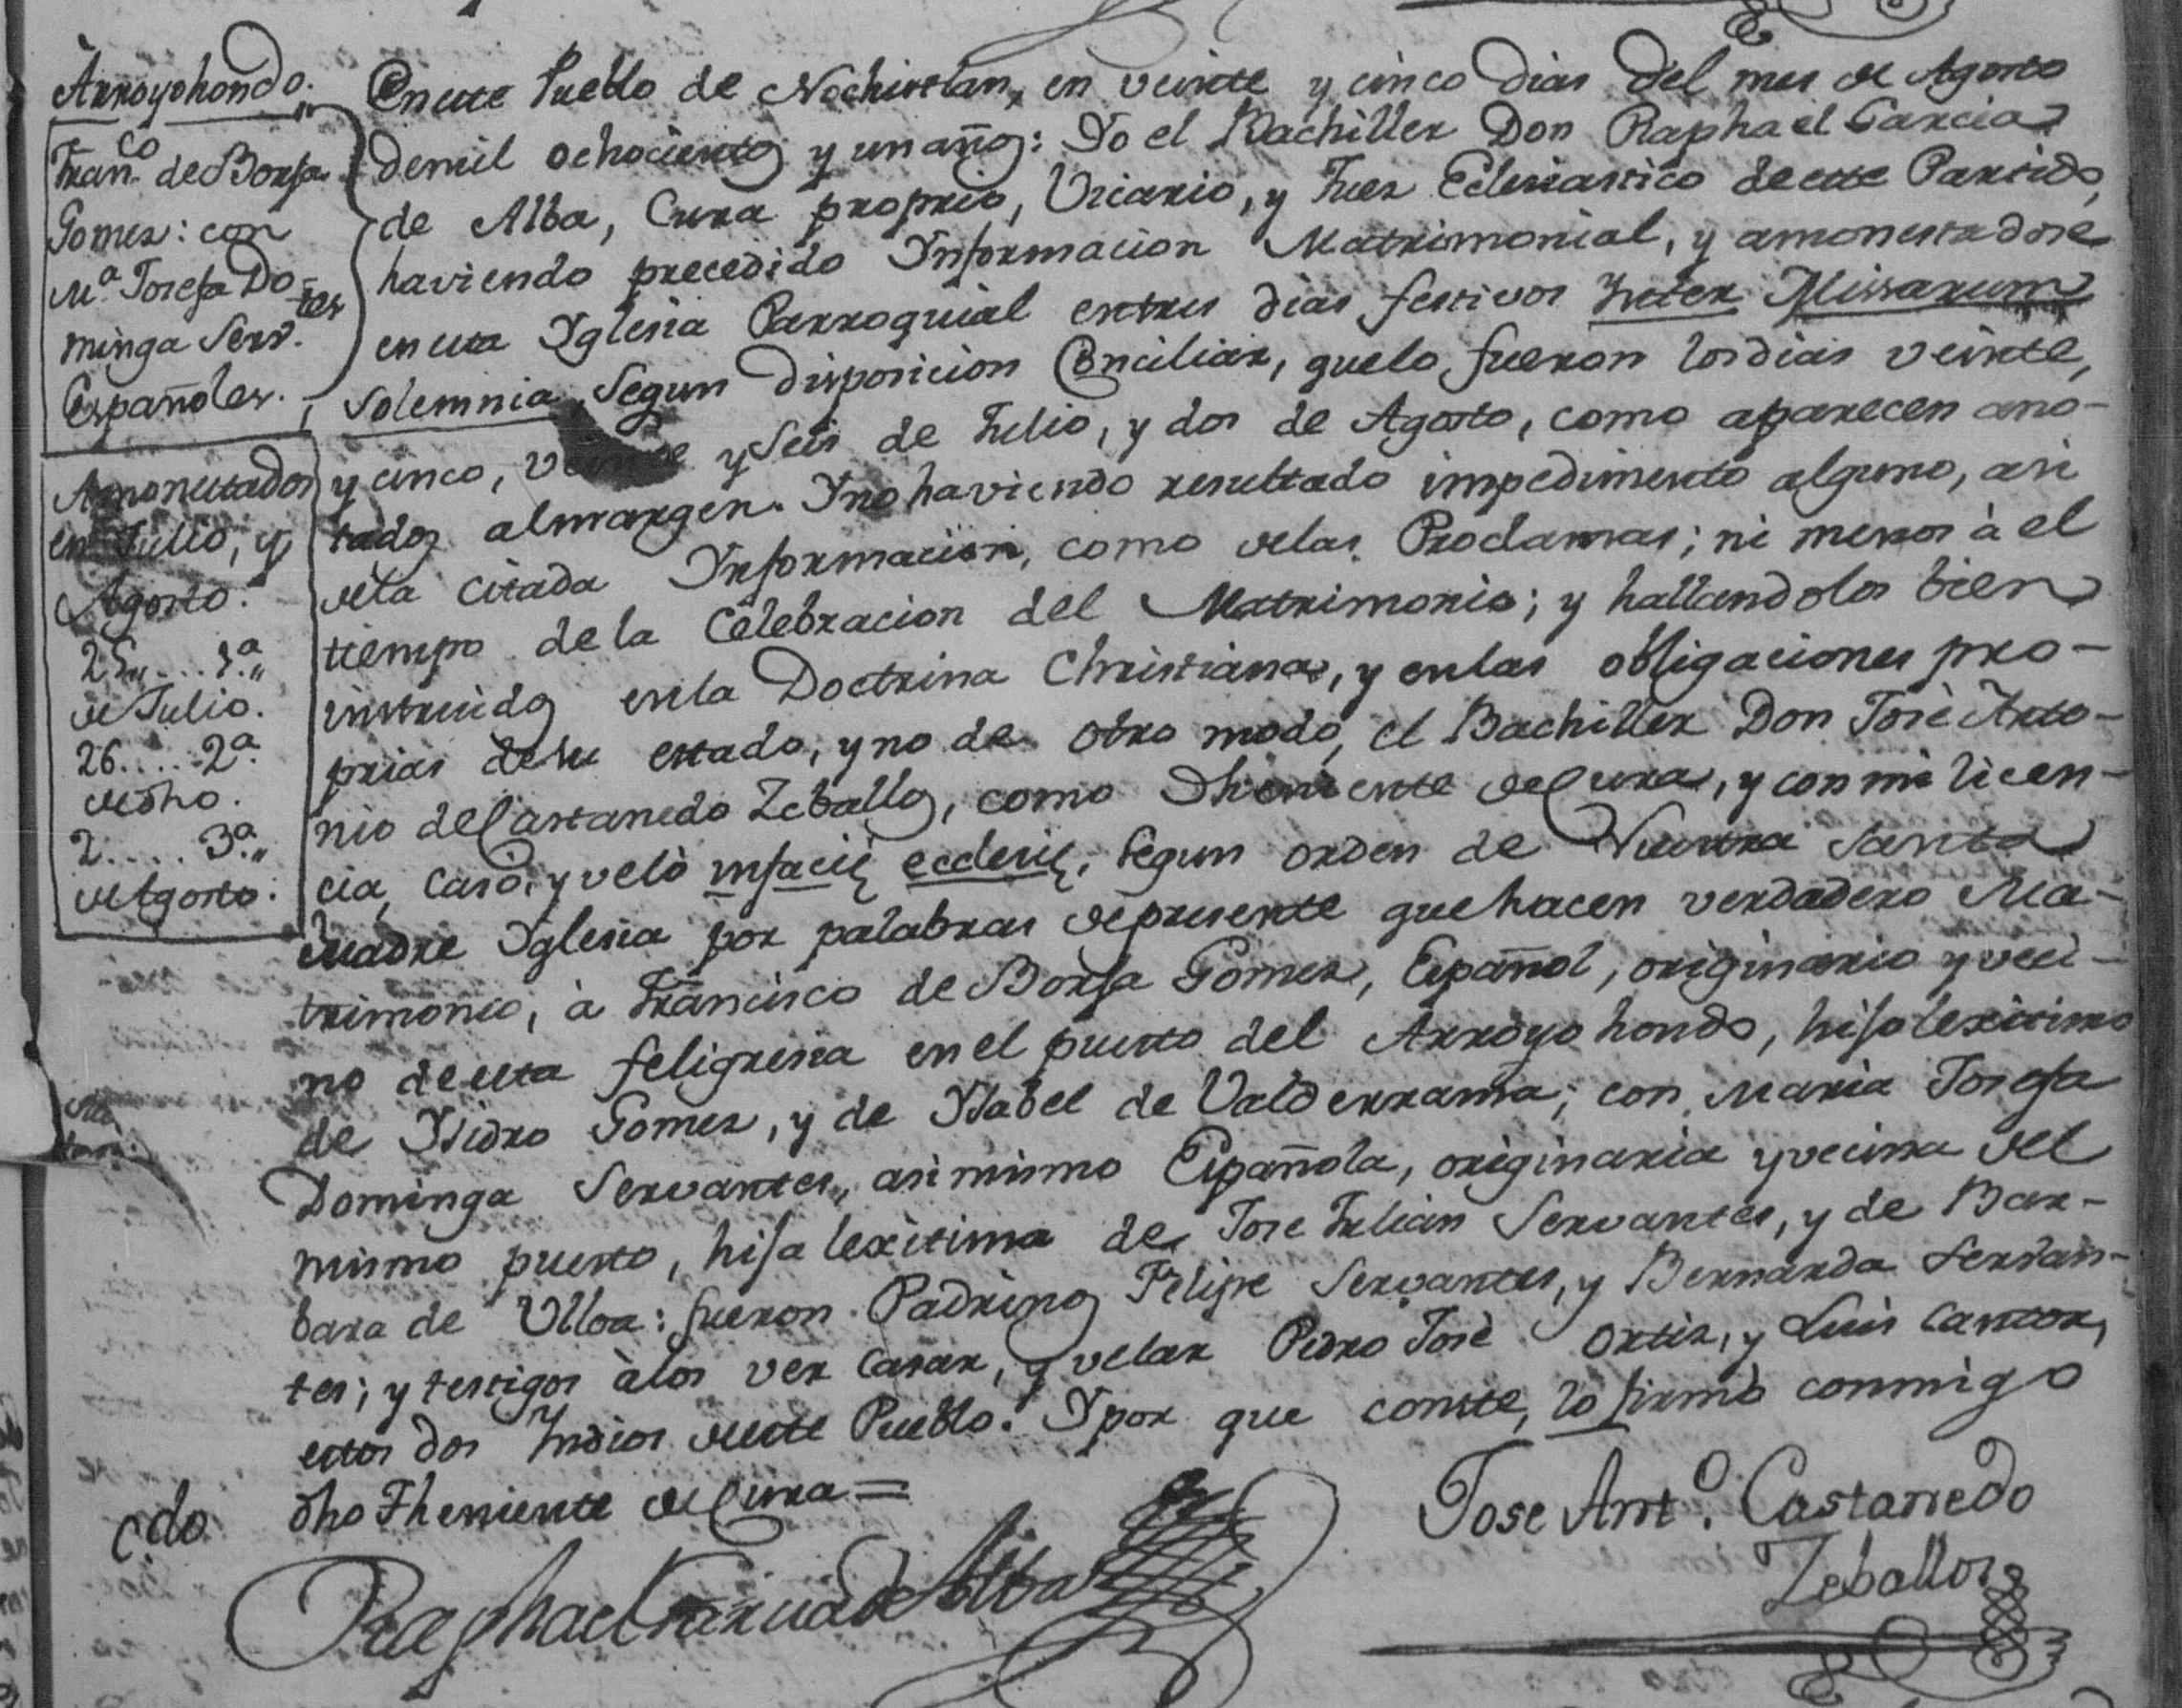 Arroyohondo.
Fran.co de Borja
Gomes: con
M.a Josefa Do-
minga Serv.tes
Españoles.
Amonestados
en Julio, y
Agosto.
25,,....1.a,,
de Julio.
26.....2.a
de dho.
2.....3.a,,
de Agosto.
En este Pueblo de Nochistlan, en veinte y cinco dias del mes de Agosto
demil ochocientos y un años: Yo el Bachiller Don Raphael Garcia
de Alba, Cura proprio, Vicario, y Juez Eclesiastico de este Partido,
haviendo precedido Informacion Matrimonial, y amonestadose
en esta Yglesia Parroquial entres dias festivos Inter Missarum
solemnia, Segun disposicion Conciliar, quelo fueron los dias veinte,
y cinco, veinte y Seis de Julio, y dos de Agosto, como aparecen ano-
tados almargen. Y no haviendo resultado impedimento alguno, asi
dela citada Informacion, como delas Proclamas; ni menos à el
tiempo de la Celebracion del Matrimonio; y hallandolos bien
instruidos enla Doctrina Christiana, y enlas obligaciones pro-
prias desu estado, y no de otro modo, el Bachiller Don José Anto-
nio de Castanedo Zeballos, como Theniente de Cura, y con mi licen-
cia, Casò, y velò infacię ecclesię, Segun orden de Nuestra Santa
Madre Yglesia por palabras depresente que hacen verdadero Ma-
trimonio, à Francisco de Borja Gomes, Español, originario y veci-
no de esta feligresia en el puesto del Arroyo hondo, hijo lexitimo
de Ysidro Gomes, y de Ysabel de Valderrama; con Maria Josefa
Dominga Servantes, asimismo Española, originaria y vecina del
mismo puesto, hija lexitima de Jose Julian Servantes, y de Bar-
bara de Ulloa: fueron Padrinos Felipe Servantes, y Bernarda Servan-
tes; y testigos àlos ver Casar, y velar Pedro José Ortiz, y Luis Cantor,
estos dos Indios deeste Pueblo. Y por que conste, lo firmò conmigo
dho Theniente de Cura =
c.do
Raphael Garcia de Alba
Jose Ant.o Castanedo
Zeballos